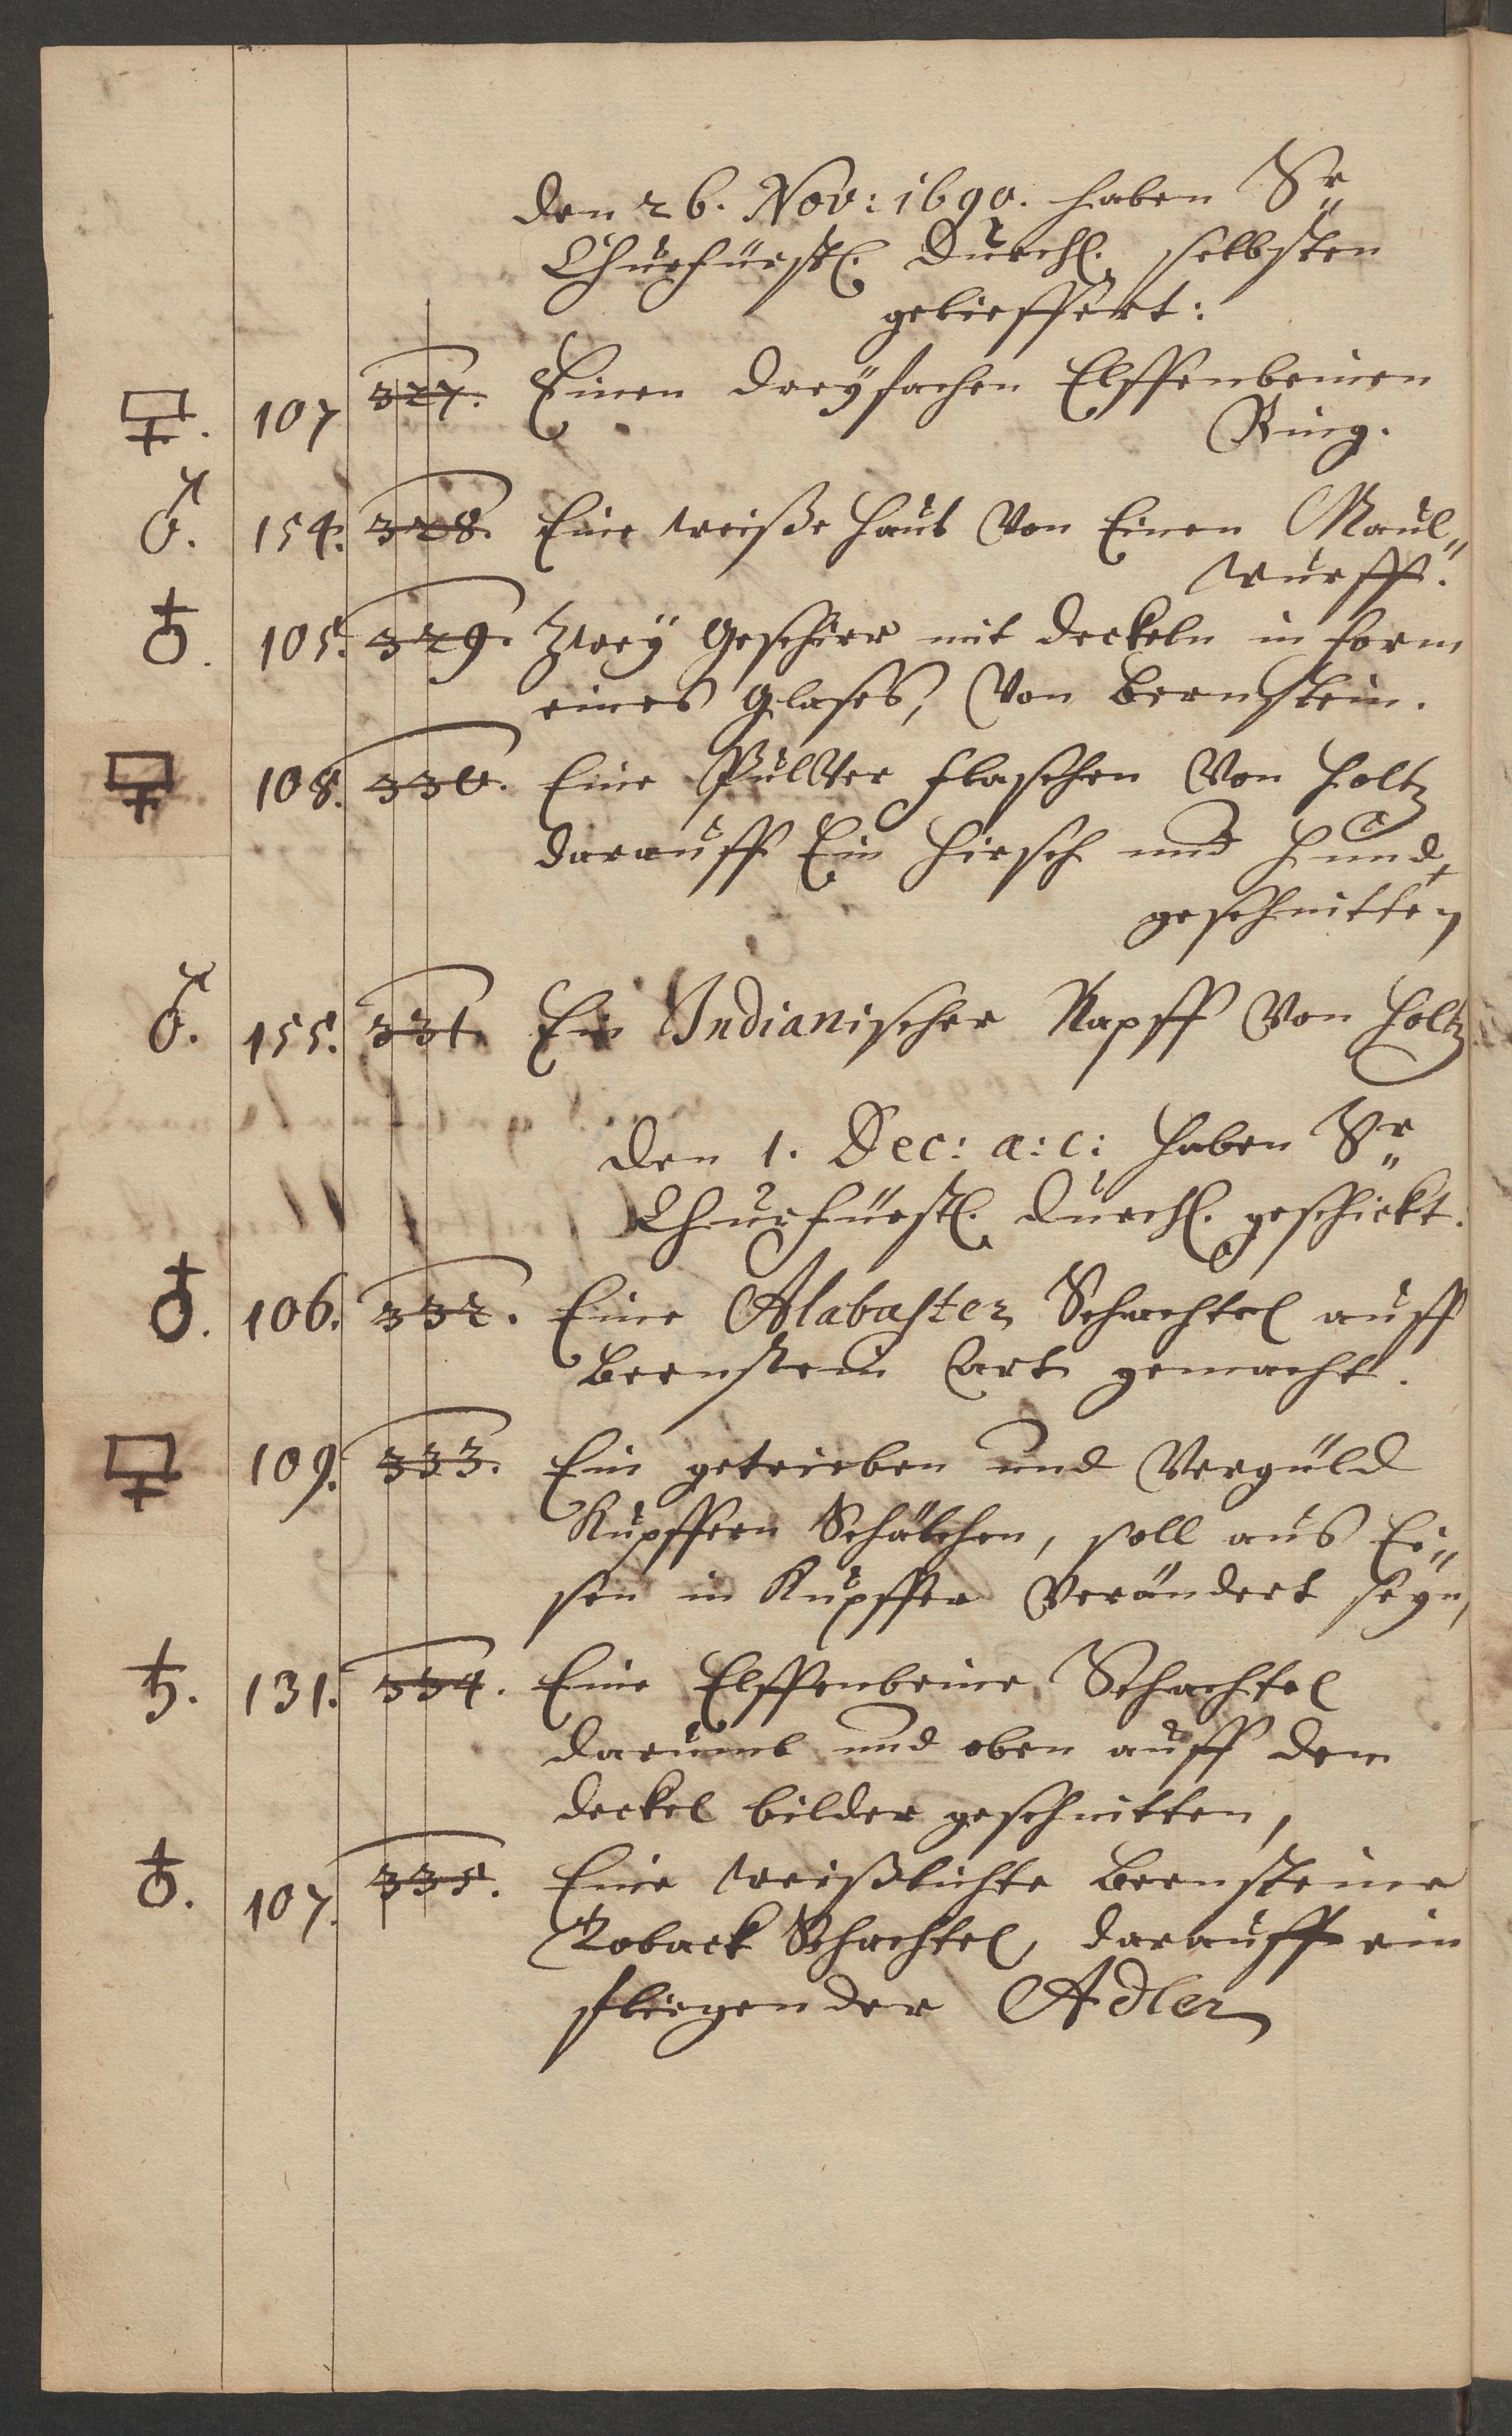 den 26. Nov: 1690. haben Sr„
Churfürstl. Durchl. selbsten
gelieffert:
107 327. Einen dreyfachen Elffenbeinen
Ring.
♂. 154. 328. Eine weiße Haut Von Einen Maul„
wurff.
♁. 105. 329. Zwey Geschirr mit deckeln in form
eines Glases, Von Bernstein.
108. 330. Eine Pullver flaschen Von Holtz
darauff Ein Hirsch und Hund
geschnitten
♂. 155. 331. Ein Indianischer Napff Von Holtz
den 1. Dec: a: c: haben Sr„
Churfürstl. Durchl. geschickt.
♁. 106. 332. Eine Alabaster Schachtel auff
Bernstein art gemacht.
109. 333. Ein getrieben und Vergüld
Kupffern Schälchen, soll aus Ei„
sen in Kupffer Verändert seyn,
♄. 131. 334. Eine Elffenbeine Schachtel
darumb und oben auff dem
deckel bilder geschnitten,
♁. 107. 335. Eine weißlichte Bernsteine
Toback Schachtel, darauff ein
fliegender Adler